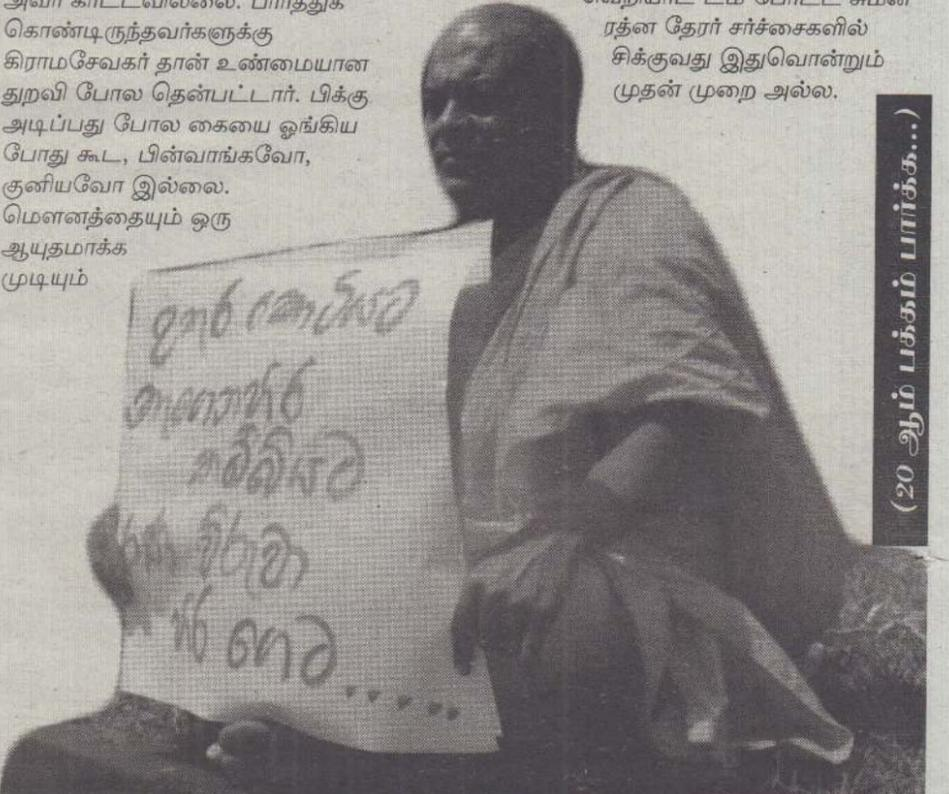 கொண்டிருந்தவர்களுக்கு
கிராமசேவகர் தான் உண்மையான
துறவி போல தென்பட்டார். பிக்கு
அடிப்பது போல கையை ஓங்கிய
போது கூட, பின்வாங்கவோ,
குனியவோ இல்லை.
மௌனத்தையும் ஒரு
ஆயுதமாக்க
முடியும்
ரத்ன தேரர் சர்ச்சைகளில்
சிக்குவது இதுவொன்றும்
முதன் முறை அல்ல.
(20 ஆம் பக்கம் பார்க்க...)
විරුවා
හිර ගෙට.....